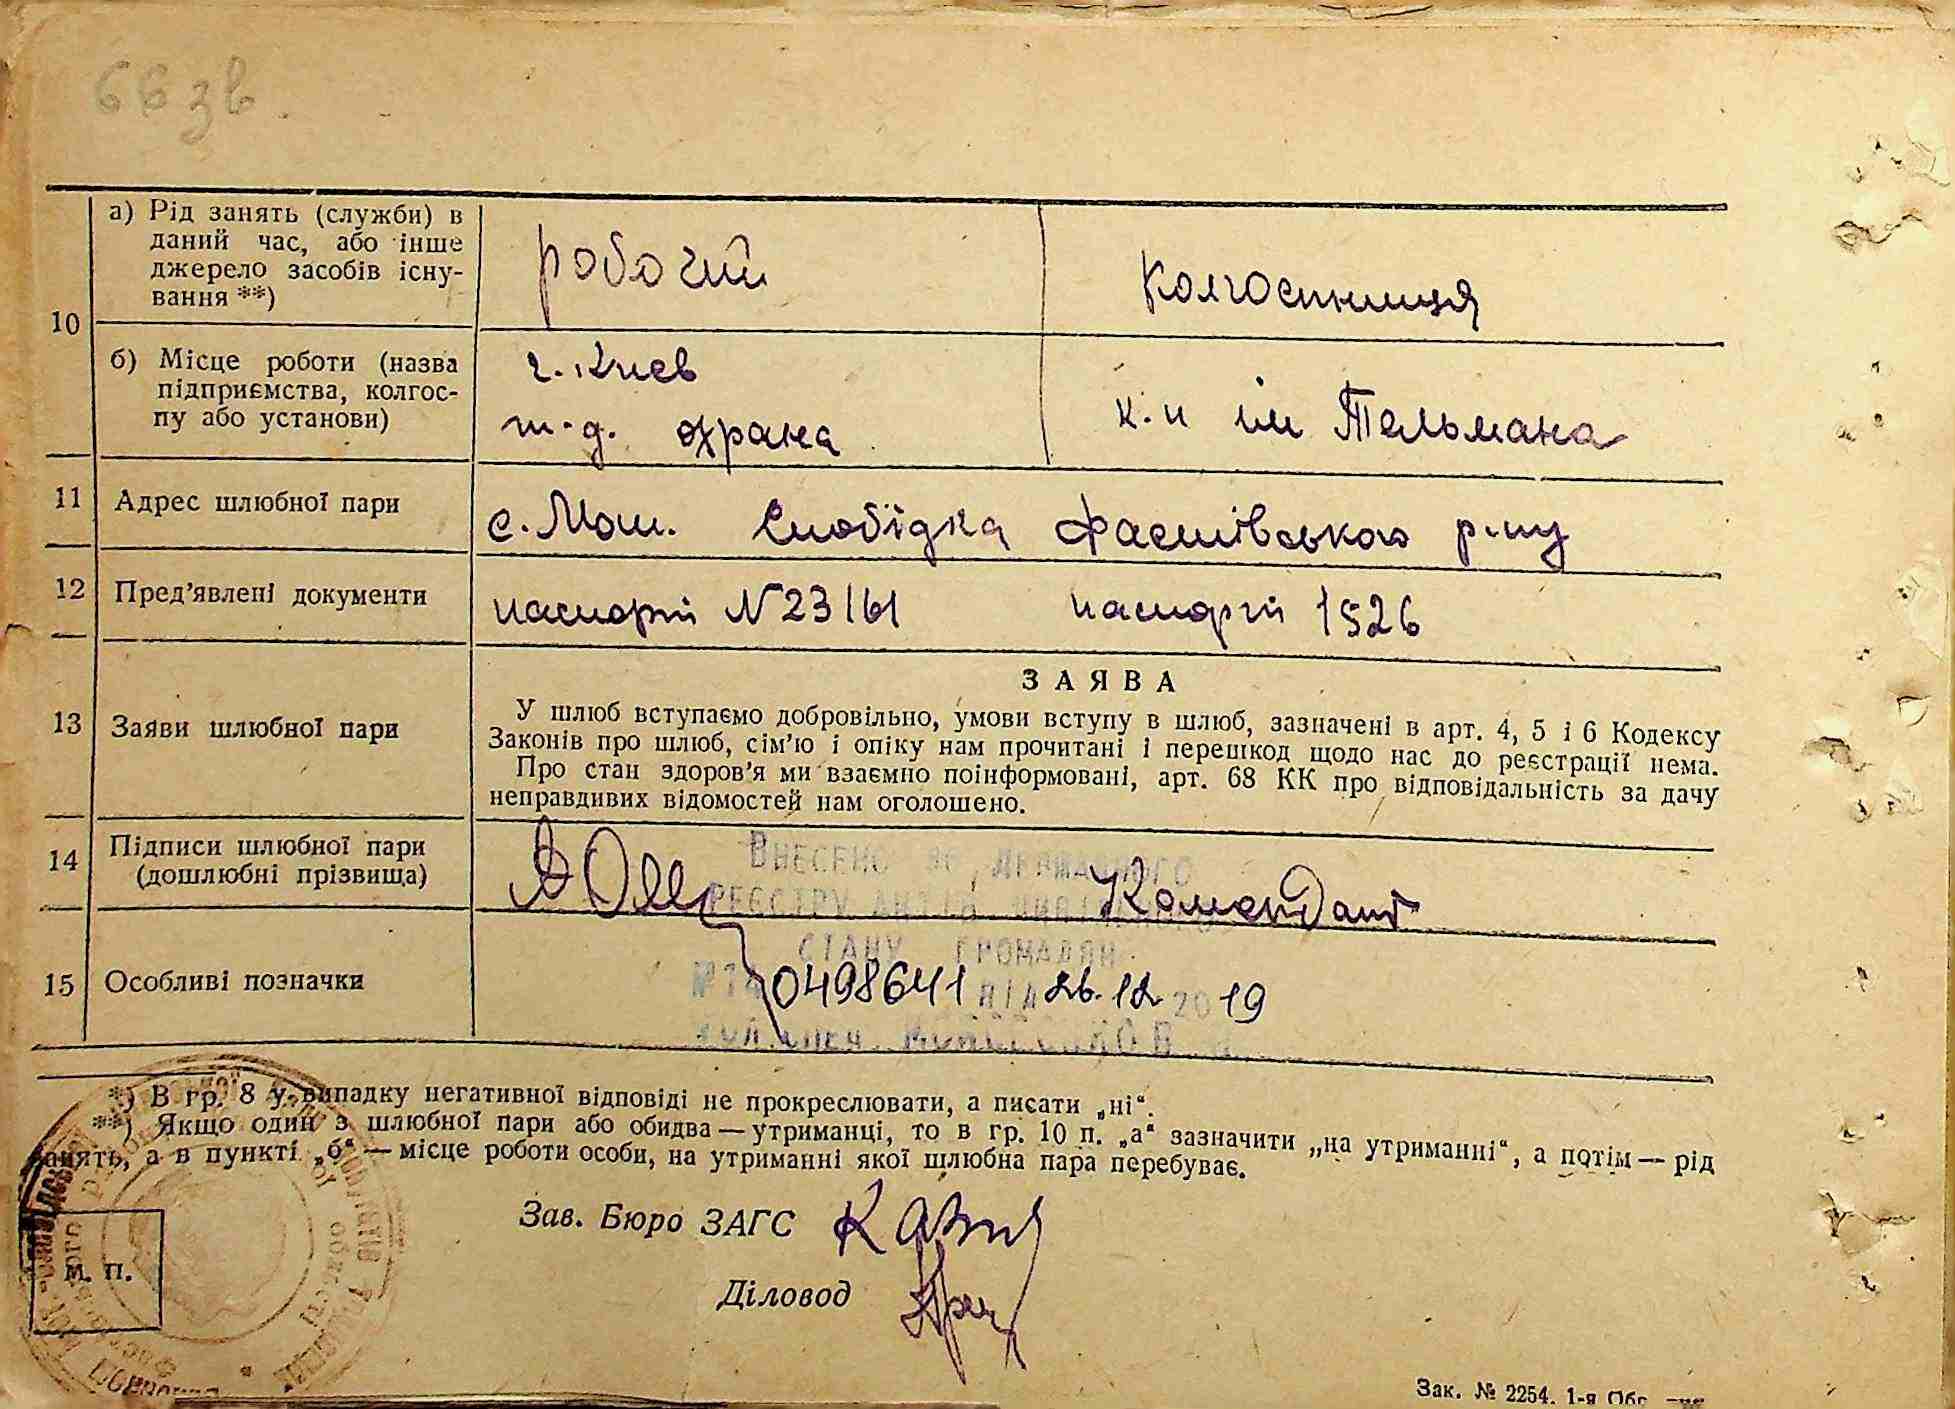 66 зв.
10
а) Рід занять (служби) в
даний час, або інше
джерело засобів існу-
вання **)
робочий
колгоспниця
б) Місце роботи (назва
підприємства, колгос-
пу або установи)
г. Киев
ж.д. охрана
к.п ім Тельмана
11
Адрес шлюбної пари
с. Мот. Слобідка Фастівського р-ну
12
Пред'явлені документи
паспорт N 23161
паспорт 1526
13
Заяви шлюбної пари
ЗАЯВА
У шлюб вступаємо добровільно, умови вступу в шлюб, зазначені в арт. 4, 5 і 6 Кодексу
Законів про шлюб, сім'ю і опіку нам прочитані і перешкод щодо нас до реєстрації нема.
Про стан здоров'я ми взаємно поінформовані, арт. 68 КК про відповідальність за дачу
неправдивих відомостей нам оголошено.
14
Підписи шлюбної пари
(дошлюбні прізвища)
Комендант
Внесено до державного
реєстру актів цивільного
стану громадян
15
Особливі позначки
№ 0498641 від 26.12 2019
*) В гр. 8 у випадку негативної відповіді не прокреслювати, а писати „ні“.
**) Якщо один з шлюбної пари або обидва — утриманці, то в гр. 10 п. „а“ зазначити „на утриманні“, а потім — рід
занять, а в пункті „б“ — місце роботи особи, на утриманні якої шлюбна пара перебуває.
Зав. Бюро ЗАГС
Діловод
М. П.
Зак. № 2254. 1-я Обр.